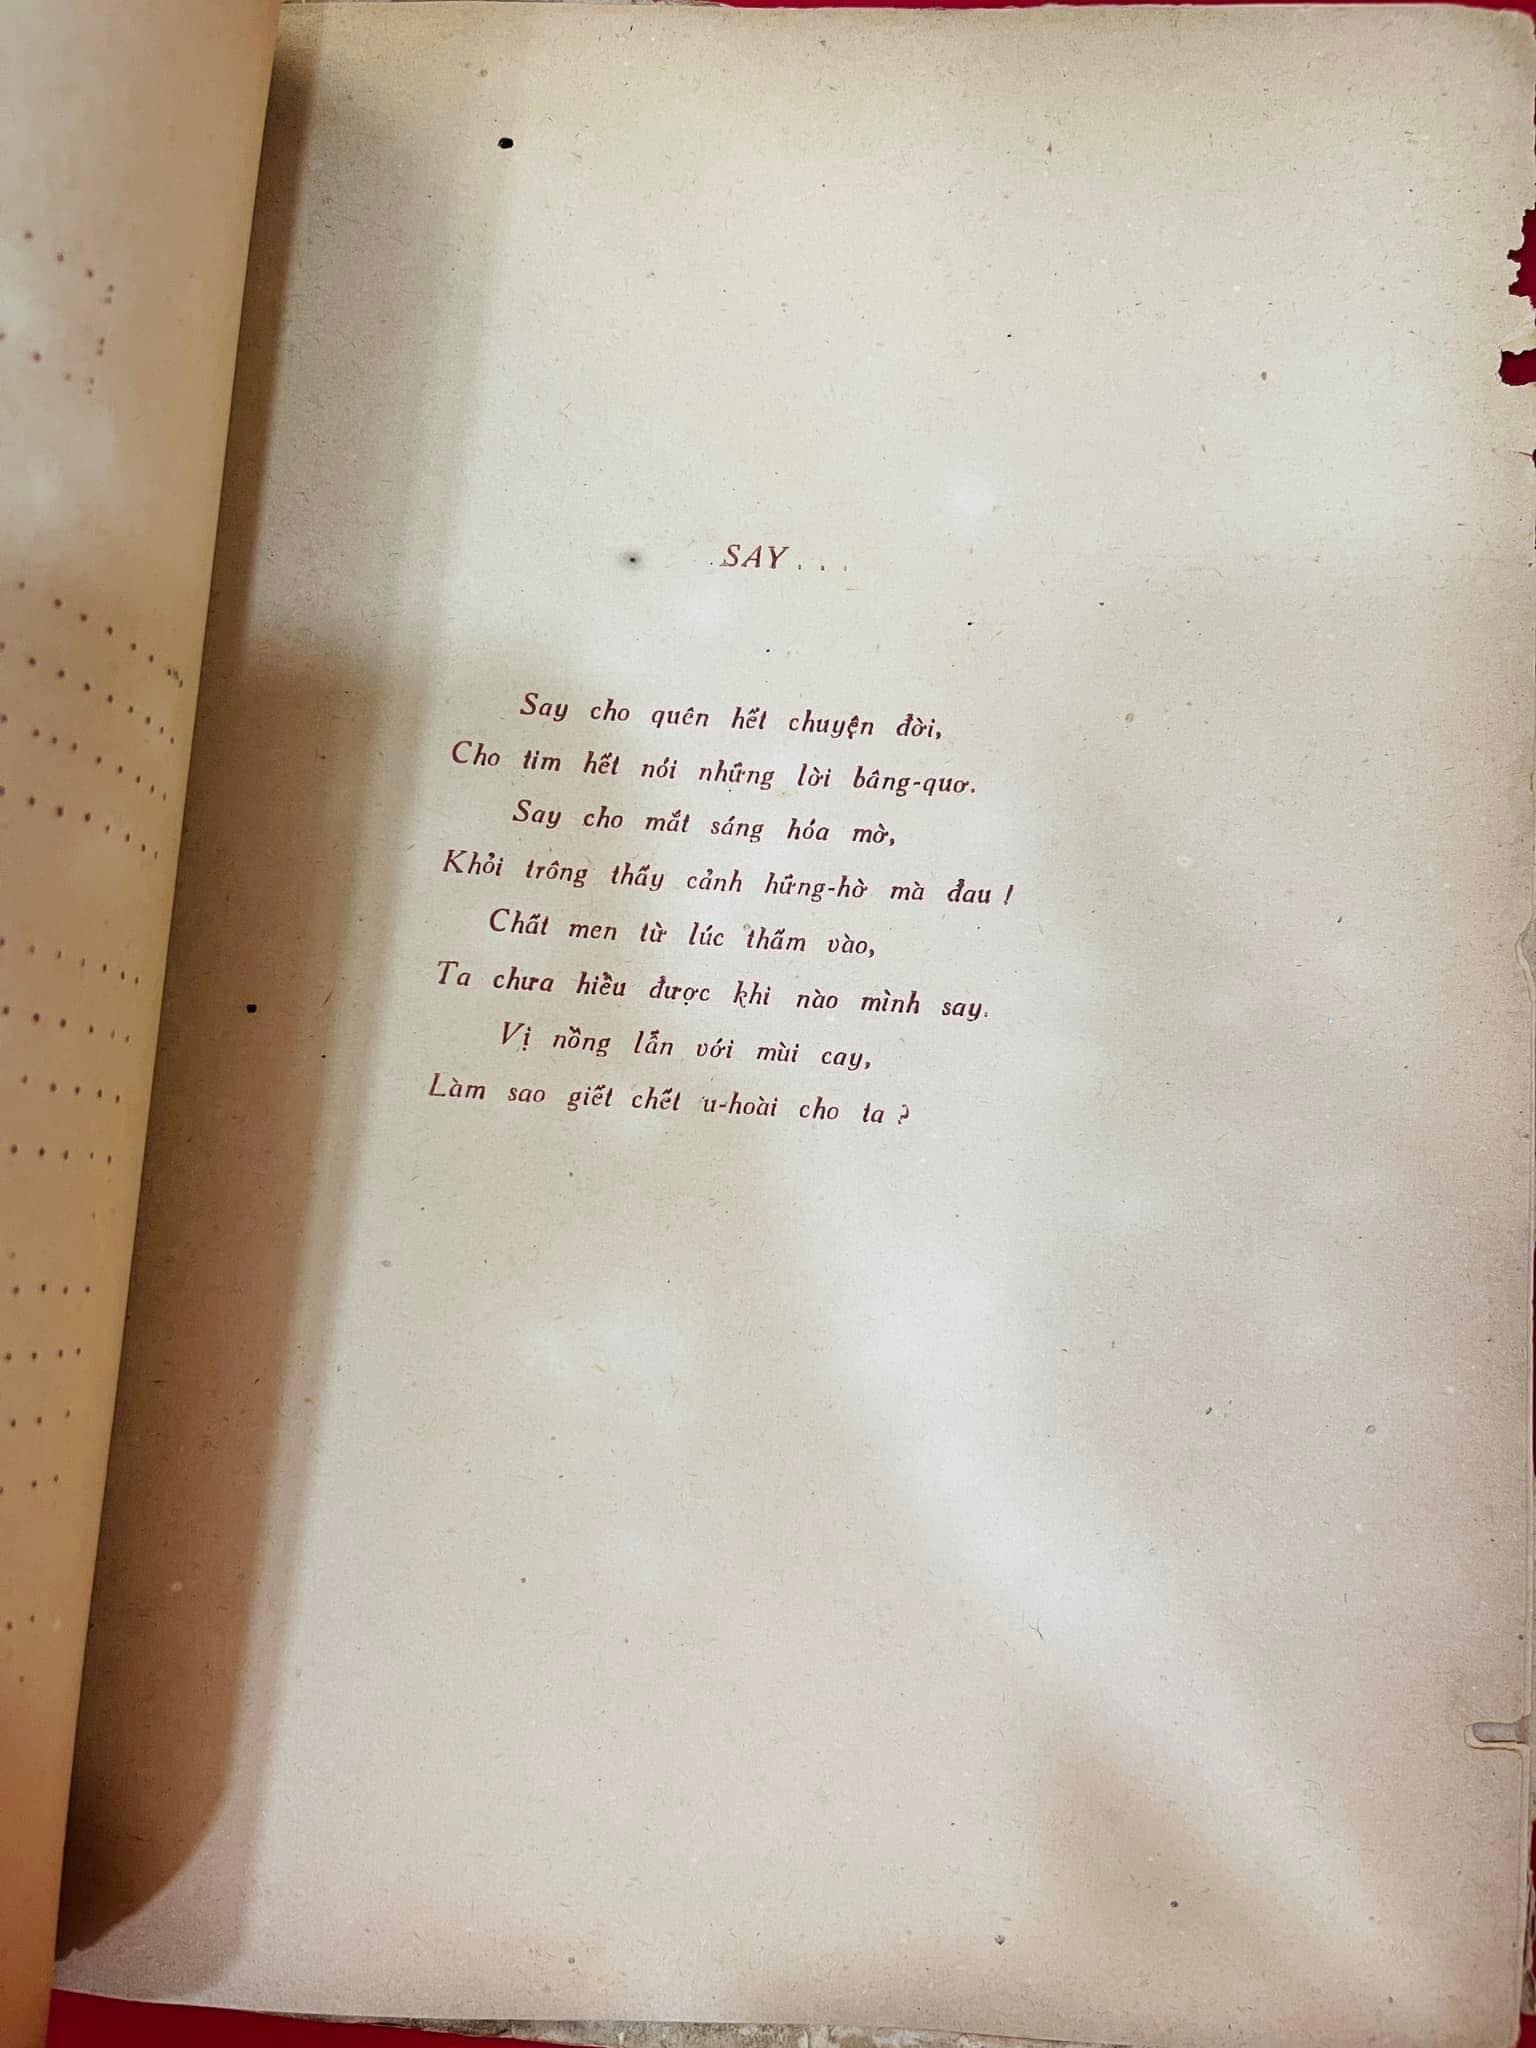 SAY . . .
Say cho quên hết chuyện đời,
Cho tim hết nói những lời bâng-quơ.
Say cho mắt sáng hóa mờ,
Khỏi trông thấy cảnh hững-hờ mà đau !
Chất men từ lúc thấm vào,
Ta chưa hiểu được khi nào mình say.
Vị nồng lẫn với mùi cay,
Làm sao giết chết u-hoài cho ta ?